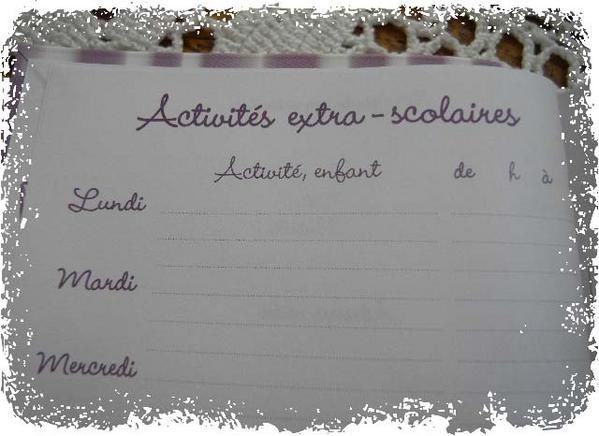 Activités extra-scolaires
Activité, enfant de h à
Lundi
Mardi
Mercredi